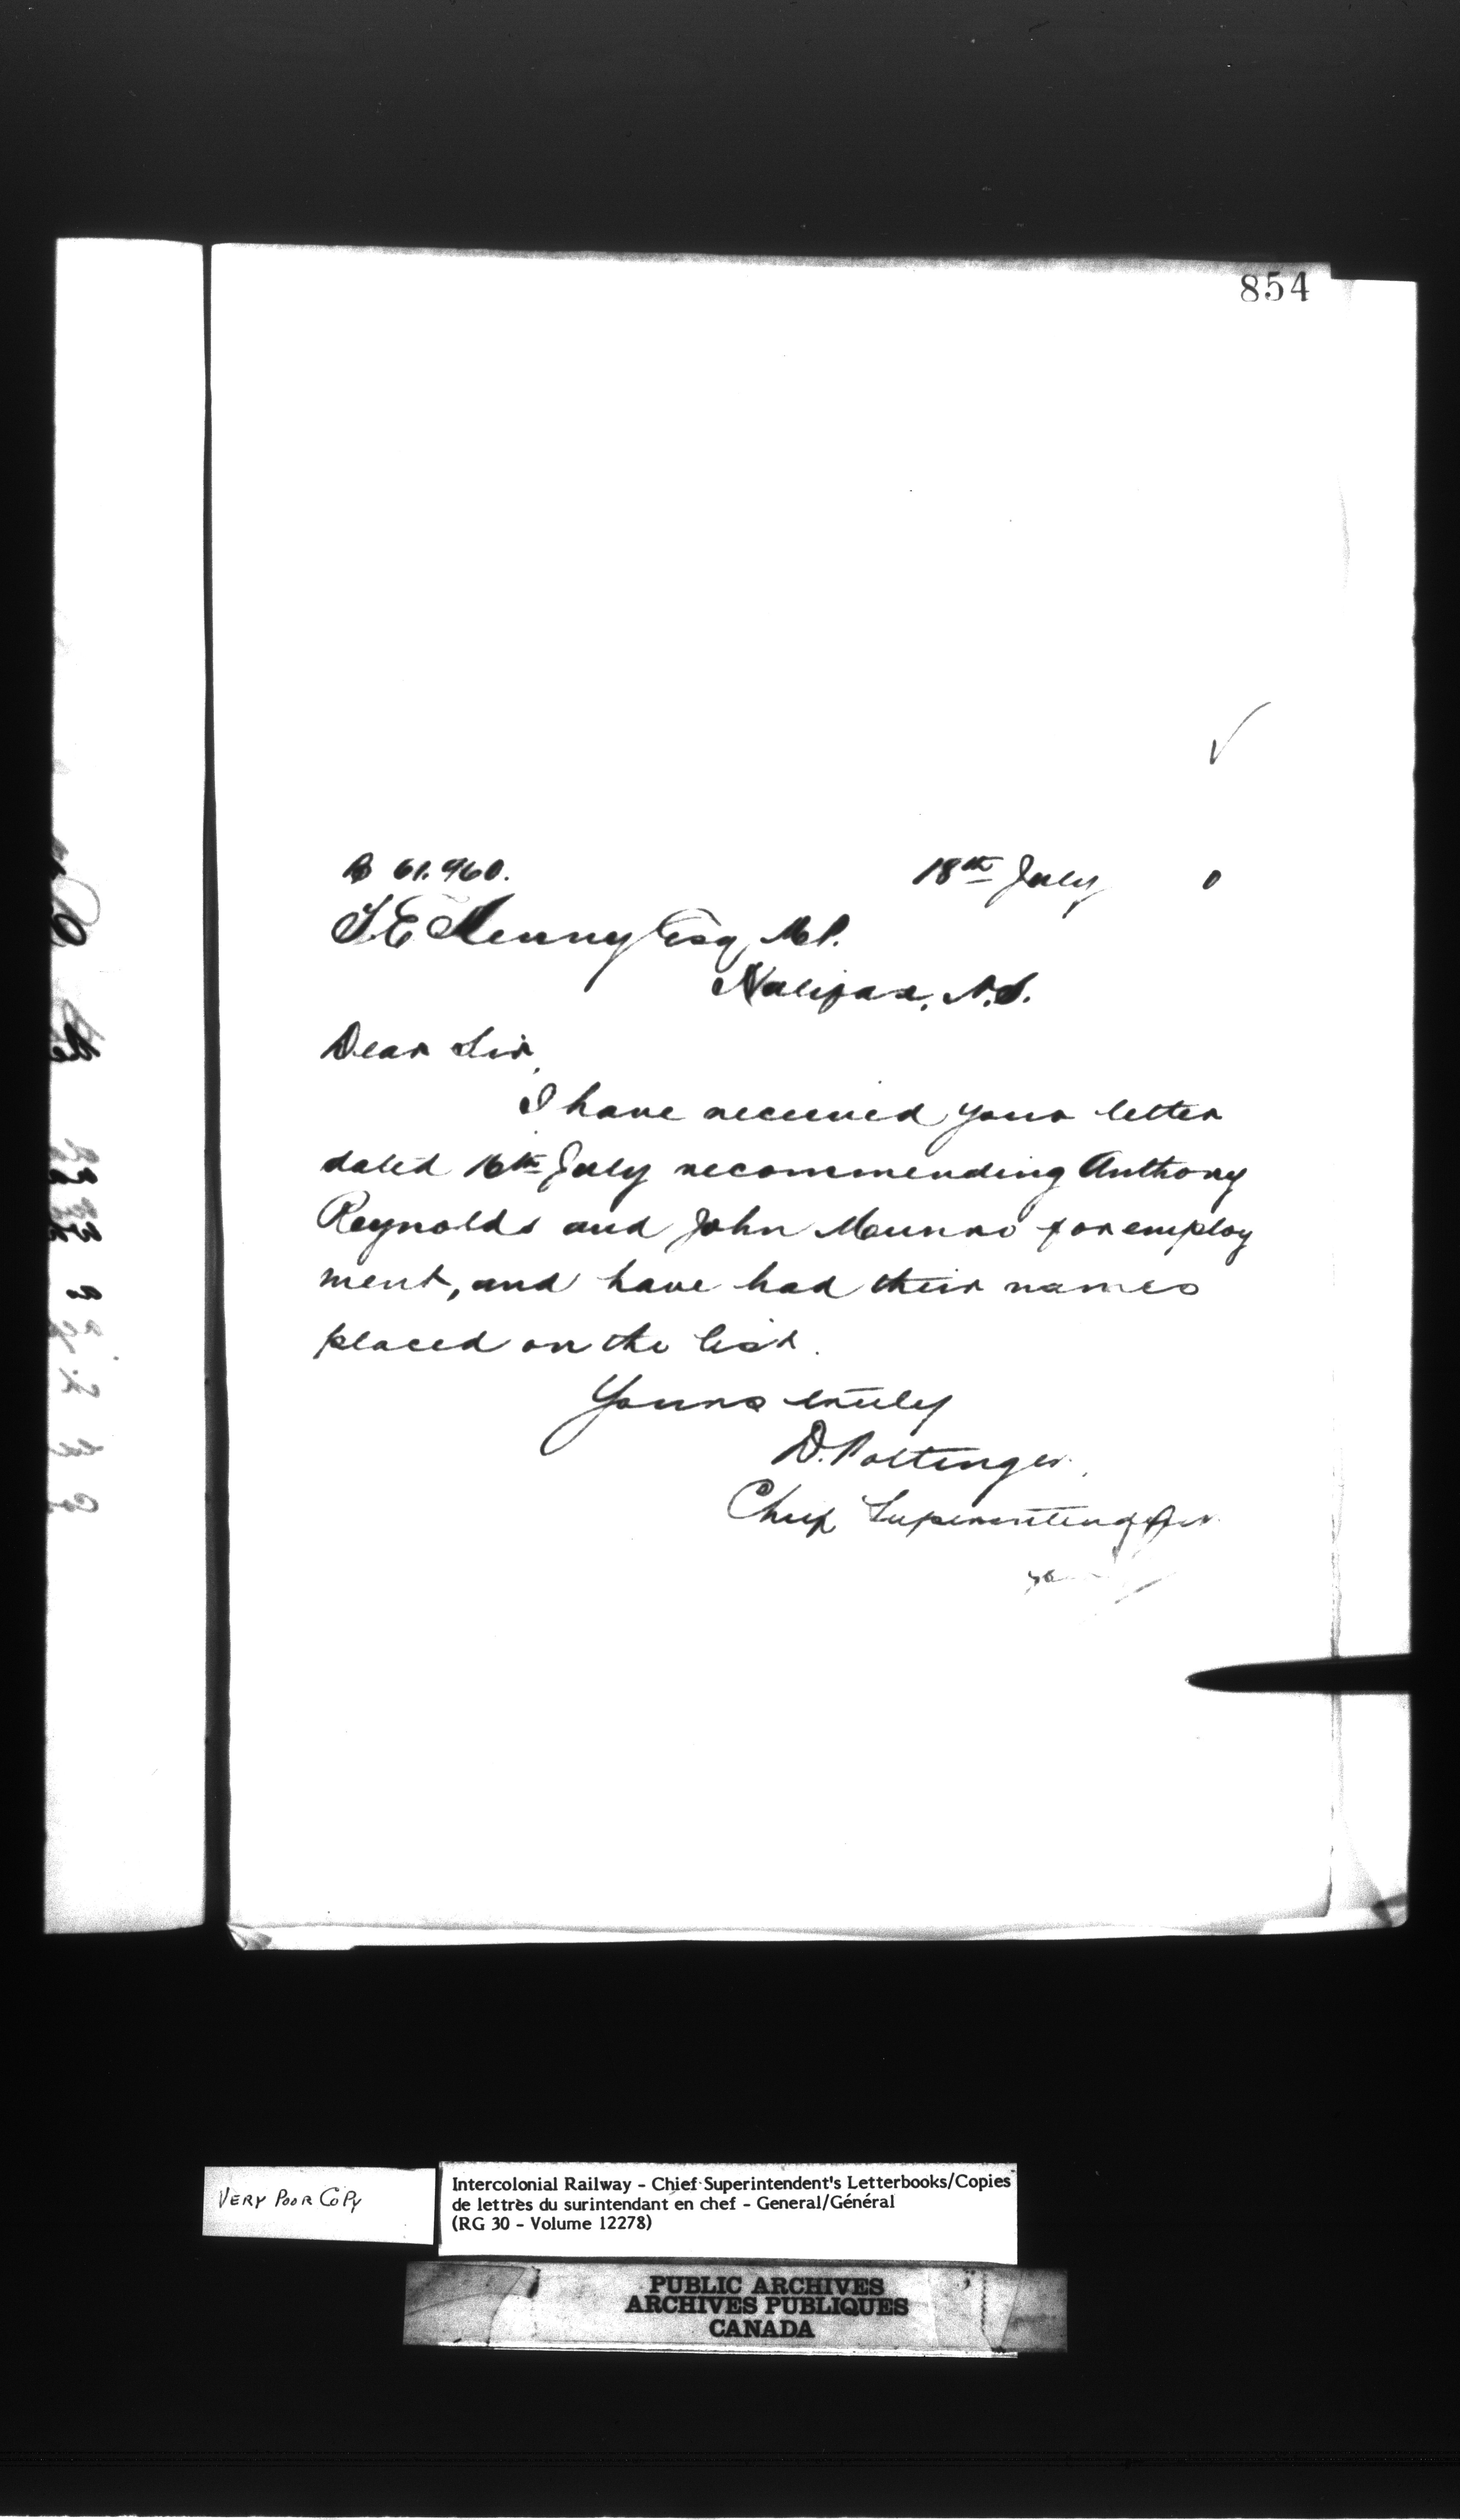 854
B 61.960. 18th July 0
T. E Kenny Esq M.P.
Halifax, N.S.
Dear Sir,
I have received your letter
dated 16th July recommending Anthony
Reynolds and John Munro for employ
ment, and have had their names
placed on the list.
Yours truly
D. Pottinger.
Chief Superintendent
VERY POOR COPY
Intercolonial Railway - Chief Superintendent's Letterbooks/Copies
de lettres du surintendant en chef - General/Général
(RG 30 - Volume 12278)
PUBLIC ARCHIVES
ARCHIVES PUBLIQUES
CANADA